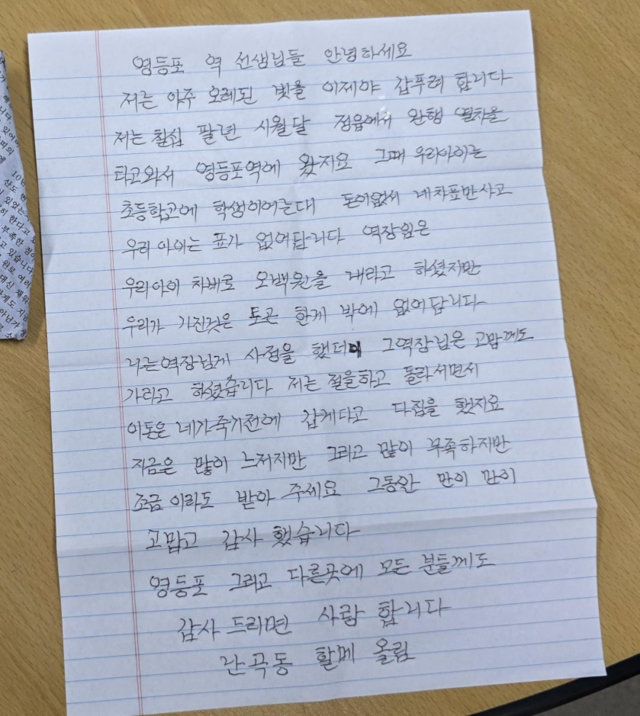 영등포 역 선생님들 안녕하세요
저는 아주 오레된 빛을 이제야 갑푸려 합니다
저는 칠십 팔년 시월달 정읍에서 완행 열차을
타고와서 영등포역에 왔지요 그때 우리아이는
초등학고에 학생이어는대 돈이없서 네차표만사고
우리 아이는 표가 없어답니다 역장임은
우리아이 차비로 오백원을 내라고 하셨지만
우리가 가진것은 토근 한게 밖에 없어답니다
나는역장님게 사정을 했더니 그역장님은 고맙께도
가라고 하셨습니다 저는 절을하고 돌라서면서
이돈은 네가죽기전에 갑게다고 다짐을 했지요
지금은 많이 느저지만 그리고 많이 부족하지만
조금 이라도 받아 주세요 그동안 만이 만이
고맙고 감사 했습니다
영등포 그리고 다른곳에 모든 분들께도
감사 드리면 사랑 합니다
난곡동 할메 올림